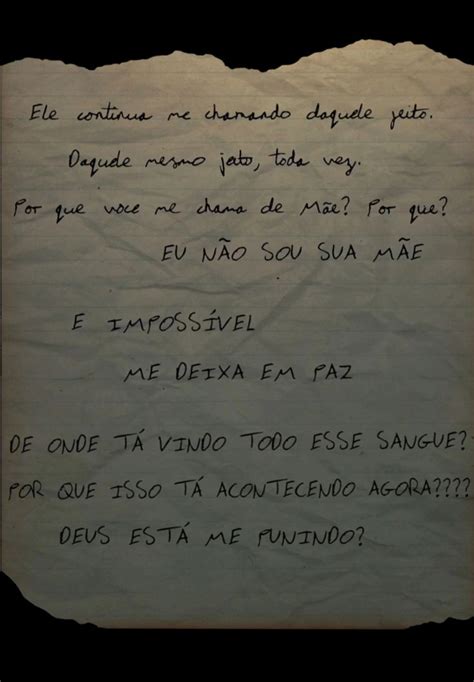 Ele continua me chamando daquele jeito.
Daquele mesmo jeito, toda vez.
Por que voce me chama de Mãe? Por que?
EU NÃO SOU SUA MÃE
E IMPOSSÍVEL
ME DEIXA EM PAZ
DE ONDE TÁ VINDO TODO ESSE SANGUE?
POR QUE ISSO TÁ ACONTECENDO AGORA????
DEUS ESTÁ ME PUNINDO?